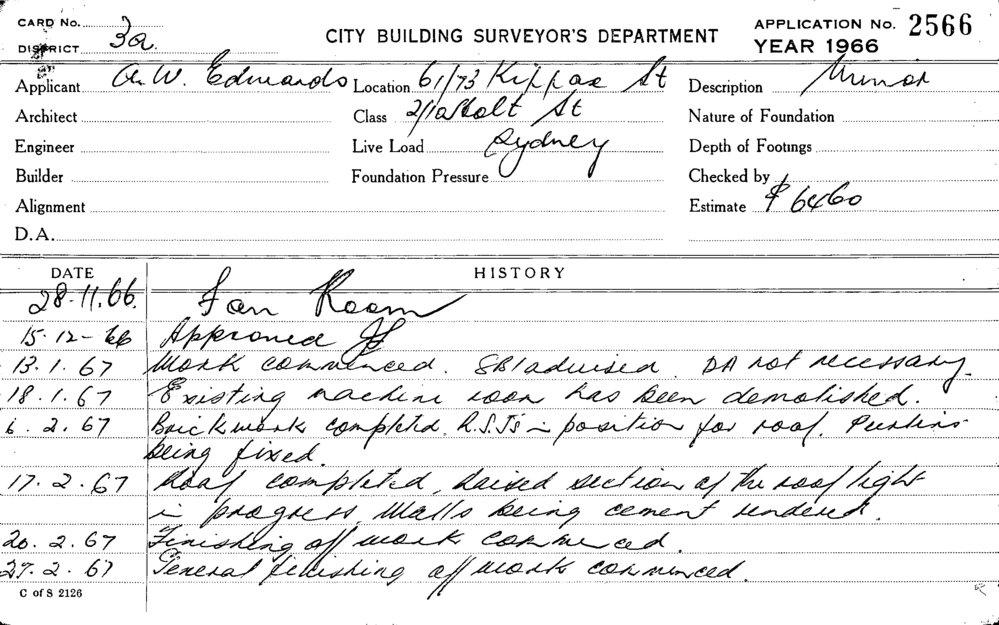 CARD No.
DISTRICT 3a
CITY BUILDING SURVEYOR'S DEPARTMENT
APPLICATION No. 2566
YEAR 1966
Applicant A. W. Edwards Location 61/73 Kippax St Description Minor
Architect Class 2/12 Holt St Nature of Foundation
Engineer Live Load Sydney Depth of Footings
Builder Foundation Pressure Checked by
Alignment Estimate $ 6460
D.A.
DATE HISTORY
28.11.66. Fan Room
15-12-66 Approved
13.1.67 Work commenced. SBI advised. DA not necessary.
18.1.67 Existing machine room has been demolished.
6.2.67 Brickwork completed. R.S.Js in position for roof. Purlins
being fixed.
17.2.67 Roof completed, raised section of the roof light
in progress. Walls being cement rendered.
20.2.67 Finishing off work commenced.
27.2.67 General finishing off work commenced.
C of S 2126